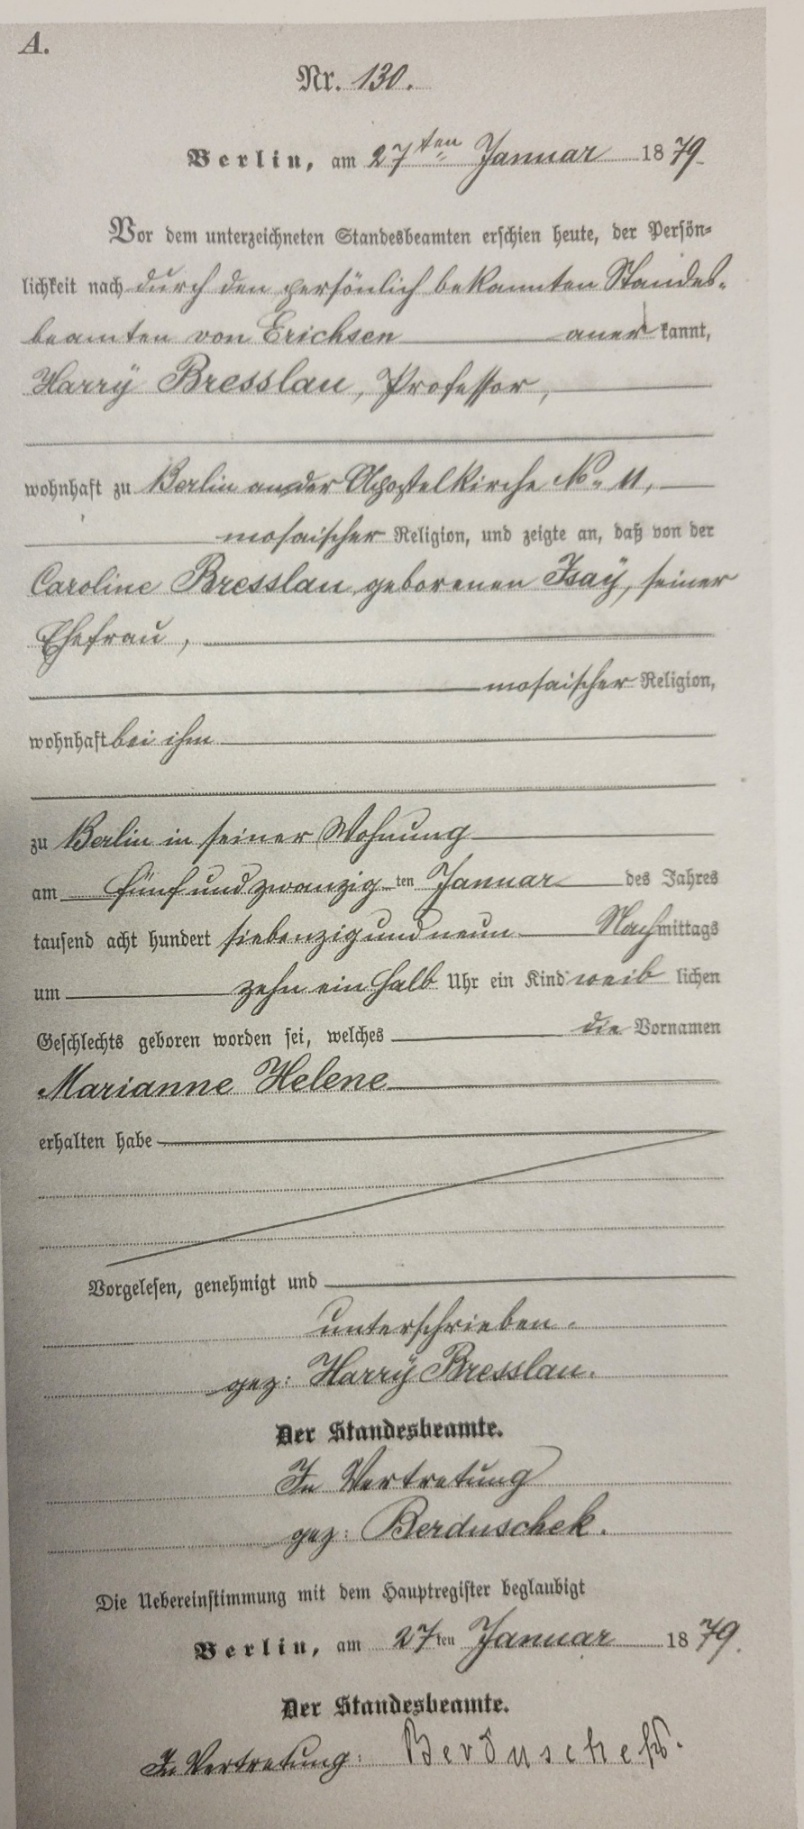 A.
Nr. 130.
Berlin, am 27ten Januar 1879.
Vor dem unterzeichneten Standesbeamten erschien heute, der Persön=
lichkeit nach durch den persönlich bekannten Standes-
beamten von Erichsen anerkannt,
Harry Bresslau, Professor,
wohnhaft zu Berlin an der Apostelkirche No. 11,
mosaischer Religion, und zeigte an, daß von der
Caroline Bresslau geborenen Isay, seiner
Ehefrau,
mosaischer Religion,
wohnhaft bei ihm
zu Berlin in seiner Wohnung
am fünf und zwanzigten Januar des Jahres
tausend acht hundert siebenzig und neun Nachmittags
um zehn ein halb Uhr ein Kind weiblichen
Geschlechts geboren worden sei, welches die Vornamen
Marianne Helene
erhalten habe
Vorgelesen, genehmigt und
unterschrieben.
gez: Harry Bresslau.
Der Standesbeamte.
In Vertretung
gez: Berduschek.
Die Uebereinstimmung mit dem Hauptregister beglaubigt
Berlin, am 27ten Januar 1879.
Der Standesbeamte.
In Vertretung: Berduschek.